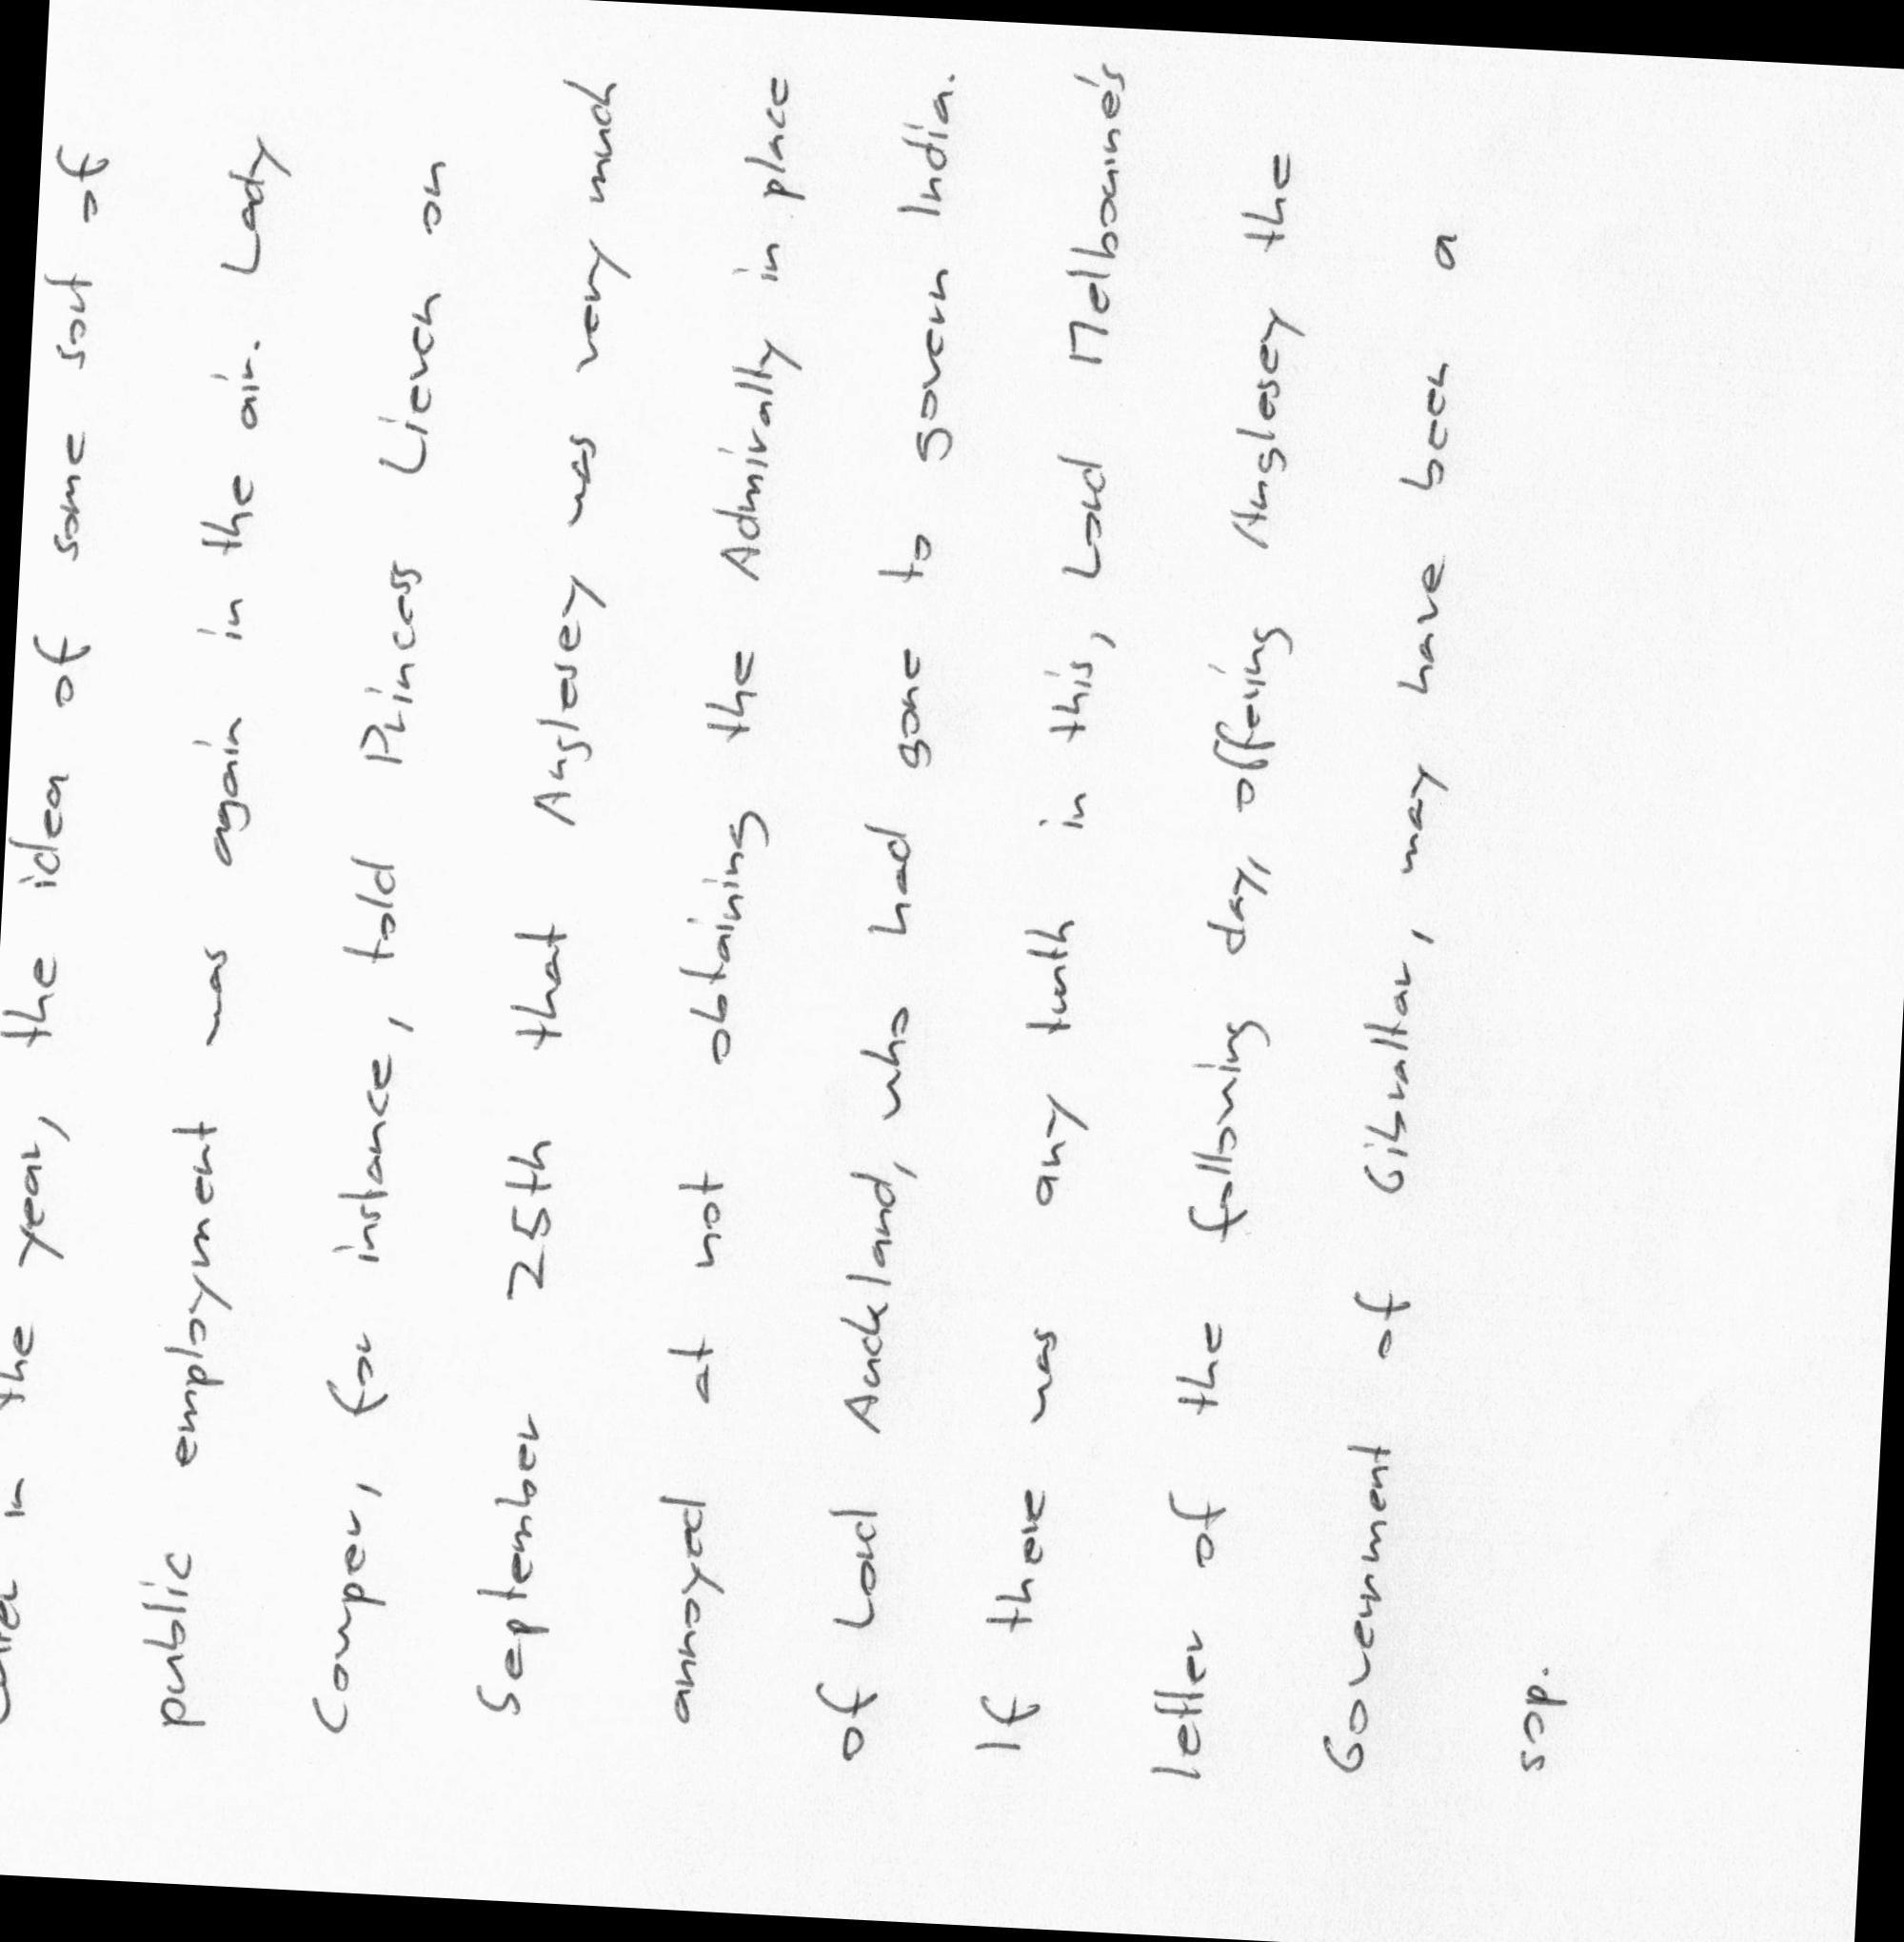 in the year, the idea of some sort of
public employment was again in the air. Lady
Cowper, for instance, told Princess Lieven on
September 25th that Anglesey was very much
annoyed at not obtaining the Admiralty in place
of Lord Auckland, who had gone to govern India.
If there was any truth in this, Lord Melbourne's
letter of the following day, offering Anglesey the
Government of Gibraltar, may have been a
sop.